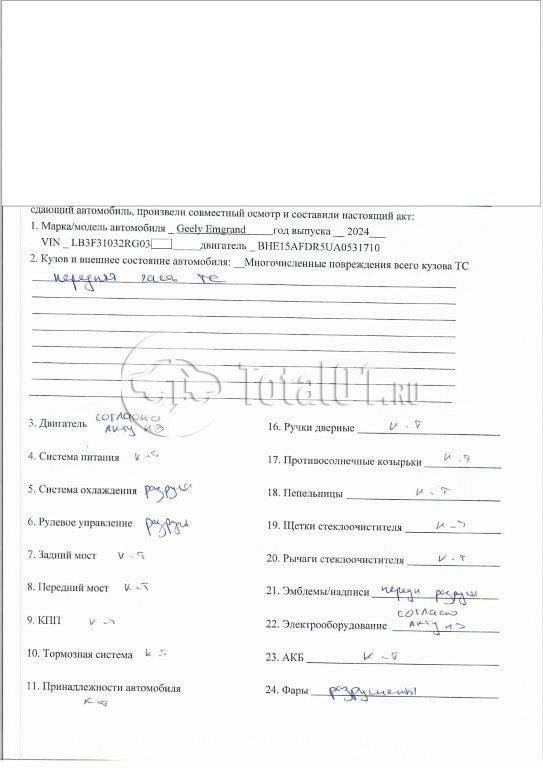 сдающий автомобиль, произвели совместный осмотр и составили настоящий акт:
1. Марка/модель автомобиля _ Geely Emgrand_____год выпуска __ 2024___
VIN _ LB3F31032RG03 _____двигатель _ BHE15AFDR5UA0531710
2. Кузов и внешнее состояние автомобиля: __Многочисленные повреждения всего кузова ТС
передняя часть ТС
Total01.RU
3. Двигатель согласно акту НЭ
4. Система питания к-т
5. Система охлаждения разруш
6. Рулевое управление разруш
7. Задний мост к-т
8. Передний мост к-т
9. КПП к-т
10. Тормозная система к-т
11. Принадлежности автомобиля
к-т
16. Ручки дверные к-т
17. Противосолнечные козырьки к-т
18. Пепельницы к-т
19. Щетки стеклоочистителя к-т
20. Рычаги стеклоочистителя к-т
21. Эмблемы/надписи передн разруш
22. Электрооборудование согласно акту НЭ
23. АКБ к-т
24. Фары разрушены